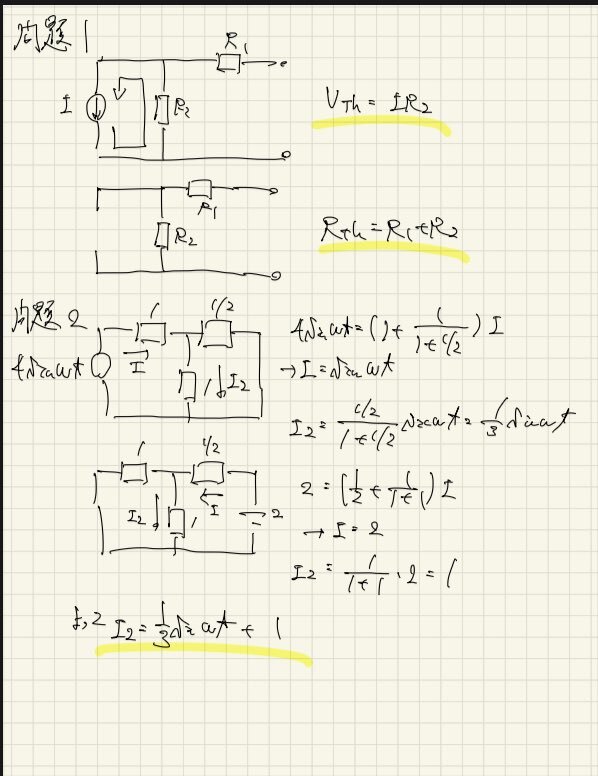 問題1
R1
I
R2
VTh = IR2
R1
R2
RTh = R1+R2
問題2
1
1/2
4sin ωt
I
1
I2
4sin ωt = (1 + 1/(1+1/2)) I
→ I = sin ωt
I2 = (1/2)/(1+1/2) sin ωt = 1/3 sin ωt
1
1/2
I2
1
I
2
2 = (1/2 + 1/(1+1)) I
→ I = 2
I2 = 1/(1+1) · 2 = 1
よって I2 = 1/3 sin ωt + 1